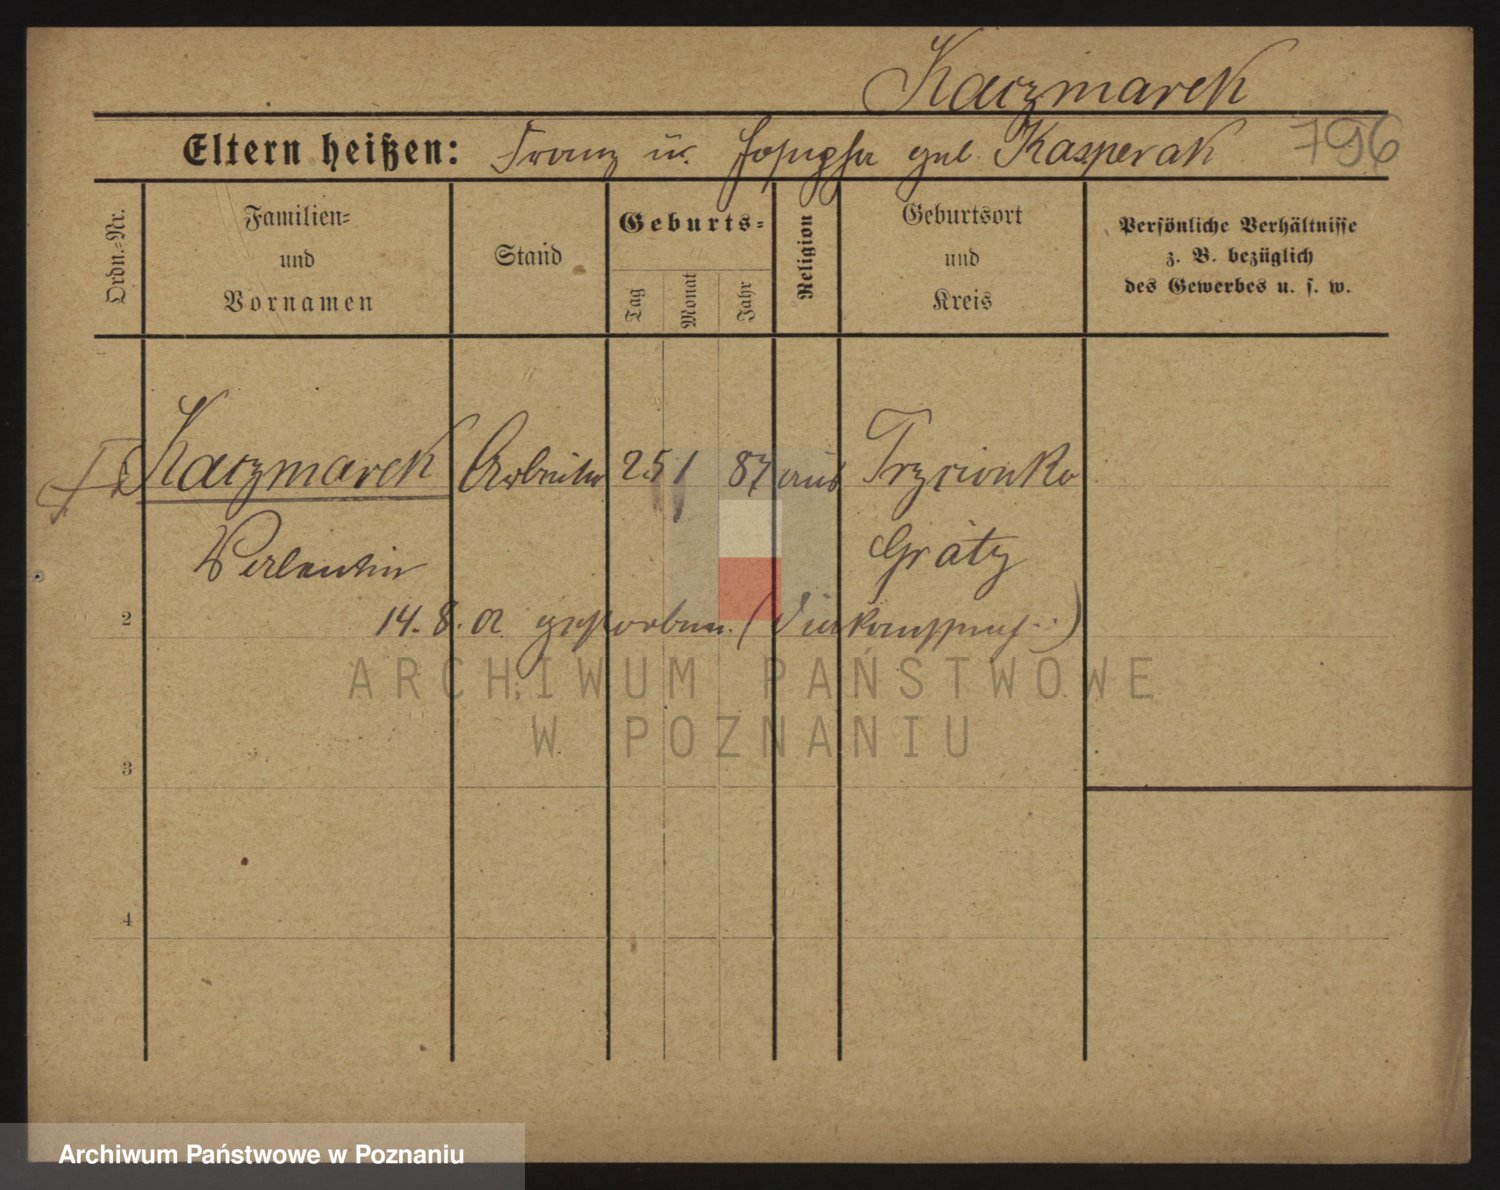 Kaczmarek
Eltern heißen: Franz u. Josepha geb. Kasperak 796
Ordn.=Nr.
Familien=
und
Vornamen
Stand
Geburts=
Tag
Monat
Jahr
Religion
Geburtsort
und
Kreis
Persönliche Verhältnisse
z. B. bezüglich
des Gewerbes u. s. w.
Kaczmarek Arbeiter 25 1 87 aus Trzcionka
Valentin Grätz
2
14. 8. 02 gestorben.
3
4
ARCHIWUM PAŃSTWOWE
W POZNANIU
Archiwum Państwowe w Poznaniu